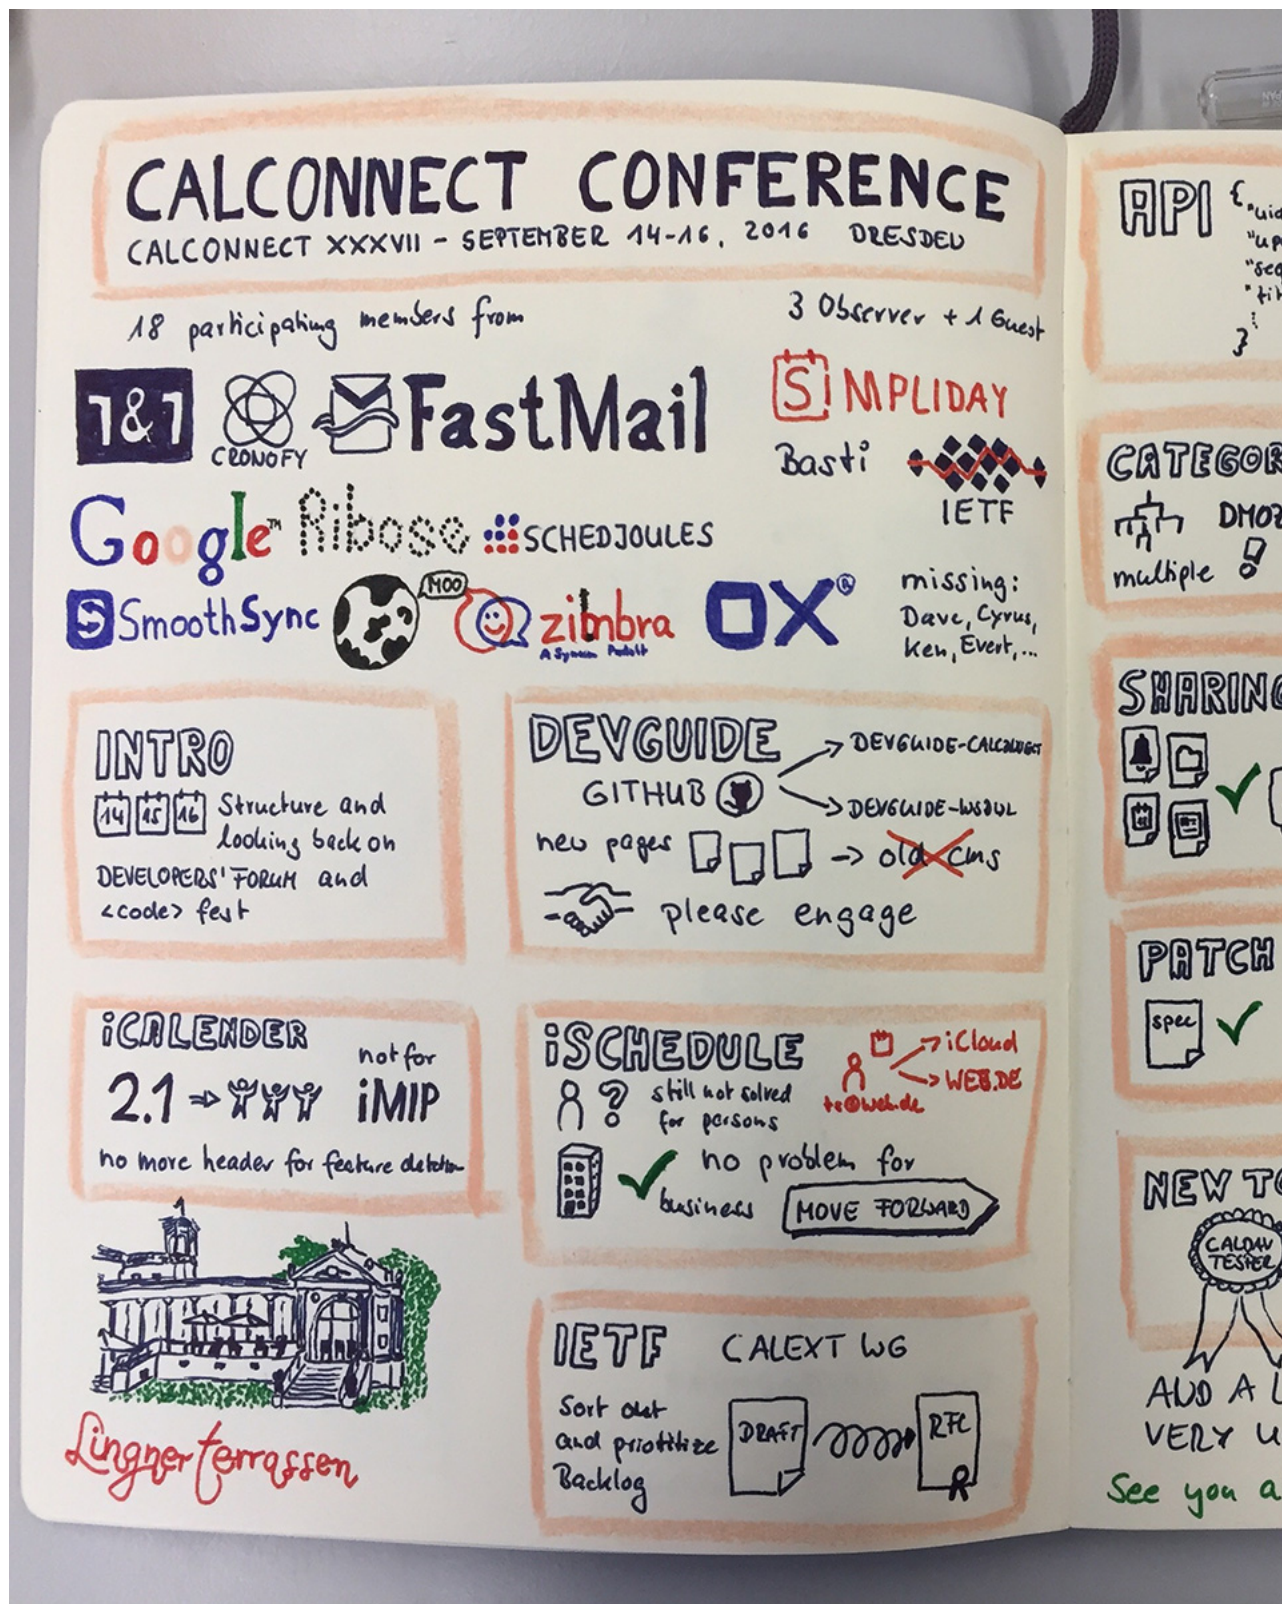 CALCONNECT CONFERENCE
CALCONNECT XXXVII - SEPTEMBER 14-16, 2016 DRESDEN
18 participating members from
3 Observer + 1 Guest
1&1
CRONOFY
FastMail
SIMPLIDAY
Basti
IETF
Google™
Ribose
SCHEDJOULES
SmoothSync
MOO
zimbra
A Synacor Product
OX®
missing:
Dave, Cyrus,
Ken, Evert, ...
INTRO
14 15 16 Structure and
looking back on
DEVELOPERS' FORUM and
<code> fest
DEVGUIDE
GITHUB
DEVGUIDE-CALCONNECT
DEVGUIDE-WSDL
new pages → old cms
please engage
iCALENDER
2.1 ⇒
not for
iMIP
no more header for feature detection
iSCHEDULE
? still not solved
for persons
→ iCloud
→ WEB.DE
@web.de
no problem for
business
MOVE FORWARD
Lingnerterrassen
IETF CALEXT WG
Sort out
and priotitize
Backlog
DRAFT
RFC
API {
"uid
"up
"seq
"tit
⋮
}
CATEGOR
DMOZ
multiple
SHARING
PATCH
spec
NEW TO
CALDAV
TESTER
AND A L
VERY
See you a